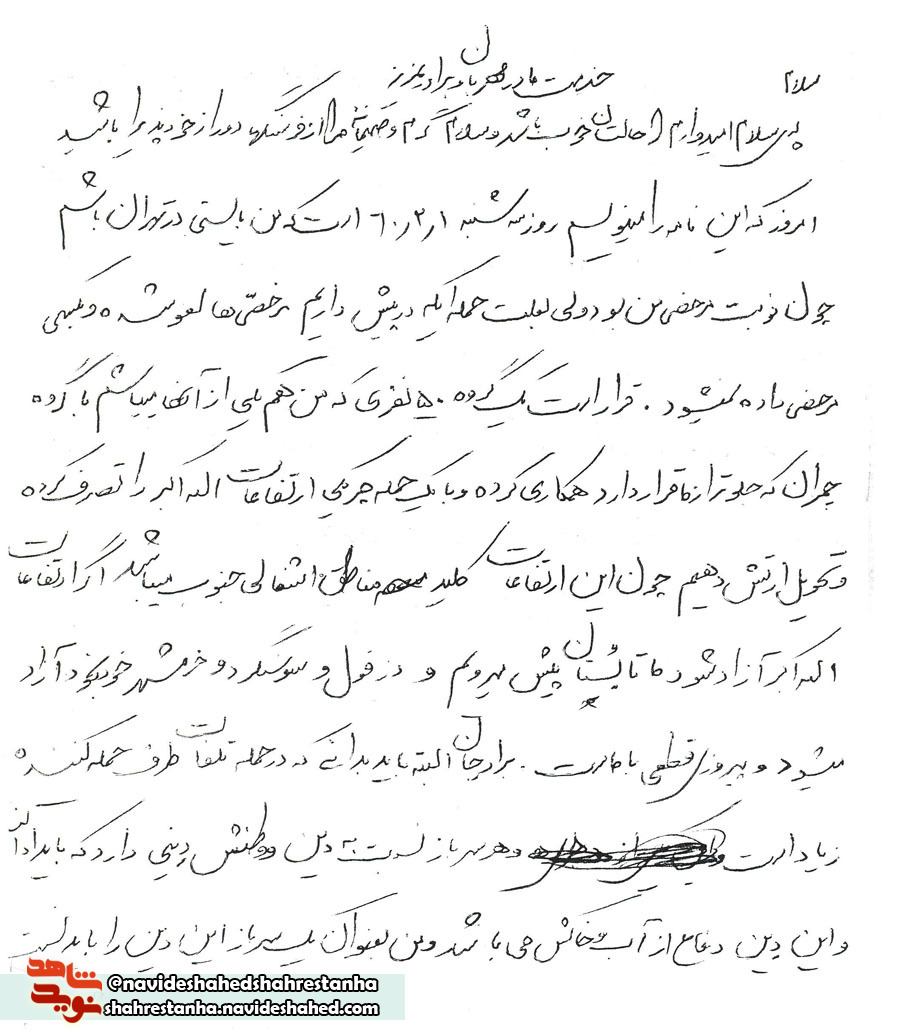 سلام
خدمت مادر مهربان و برادر عزیز
پس سلام امیدوارم احالتان خوب باشد و سلام گرم و صمیمانه مرا از فرسنگها دور از خود پذیرا باشید
امروز که این نامه را مینویسم روز سه شنبه ۶۰٫۲٫۱ است که من بایستی در تهران باشم
چون نوبت مرخصی من بود ولی بعلت حمله ایکه در پیش داریم مرخصی‌ها لغو شده و بکسی
مرخصی داده نمیشود. قرار است یک گروه ۵۰ نفری که من هم یکی از آنها میباشم با گروه
چمران که جلوتر از ما قرار دارد همکاری کرده و با یک حمله چریکی ارتفاعات الله اکبر را تصرف کرده
و تحویل ارتش دهیم چون این ارتفاعات کلید مناطق اشغالی جنوب میباشد اگر ارتفاعات
الله اکبر آزاد شود ما تا بستان پیش میرویم و دزفول و سوسنگرد و خرمشهر خودبخود آزاد
میشود و پیروزی قطعی با ماست. برادرجان البته باید بدانی که در حمله تلفات طرف حمله کننده
زیاد است و هر سرباز نسبت به دین و وطنش دینی دارد که باید ادا کند
و این دین دفاع از آب و خاکش می باشد و من بعنوان یک سرباز این دین را باید
نوید شاهد
@navideshahedshahrestanha
shahrestanha.navideshahed.com